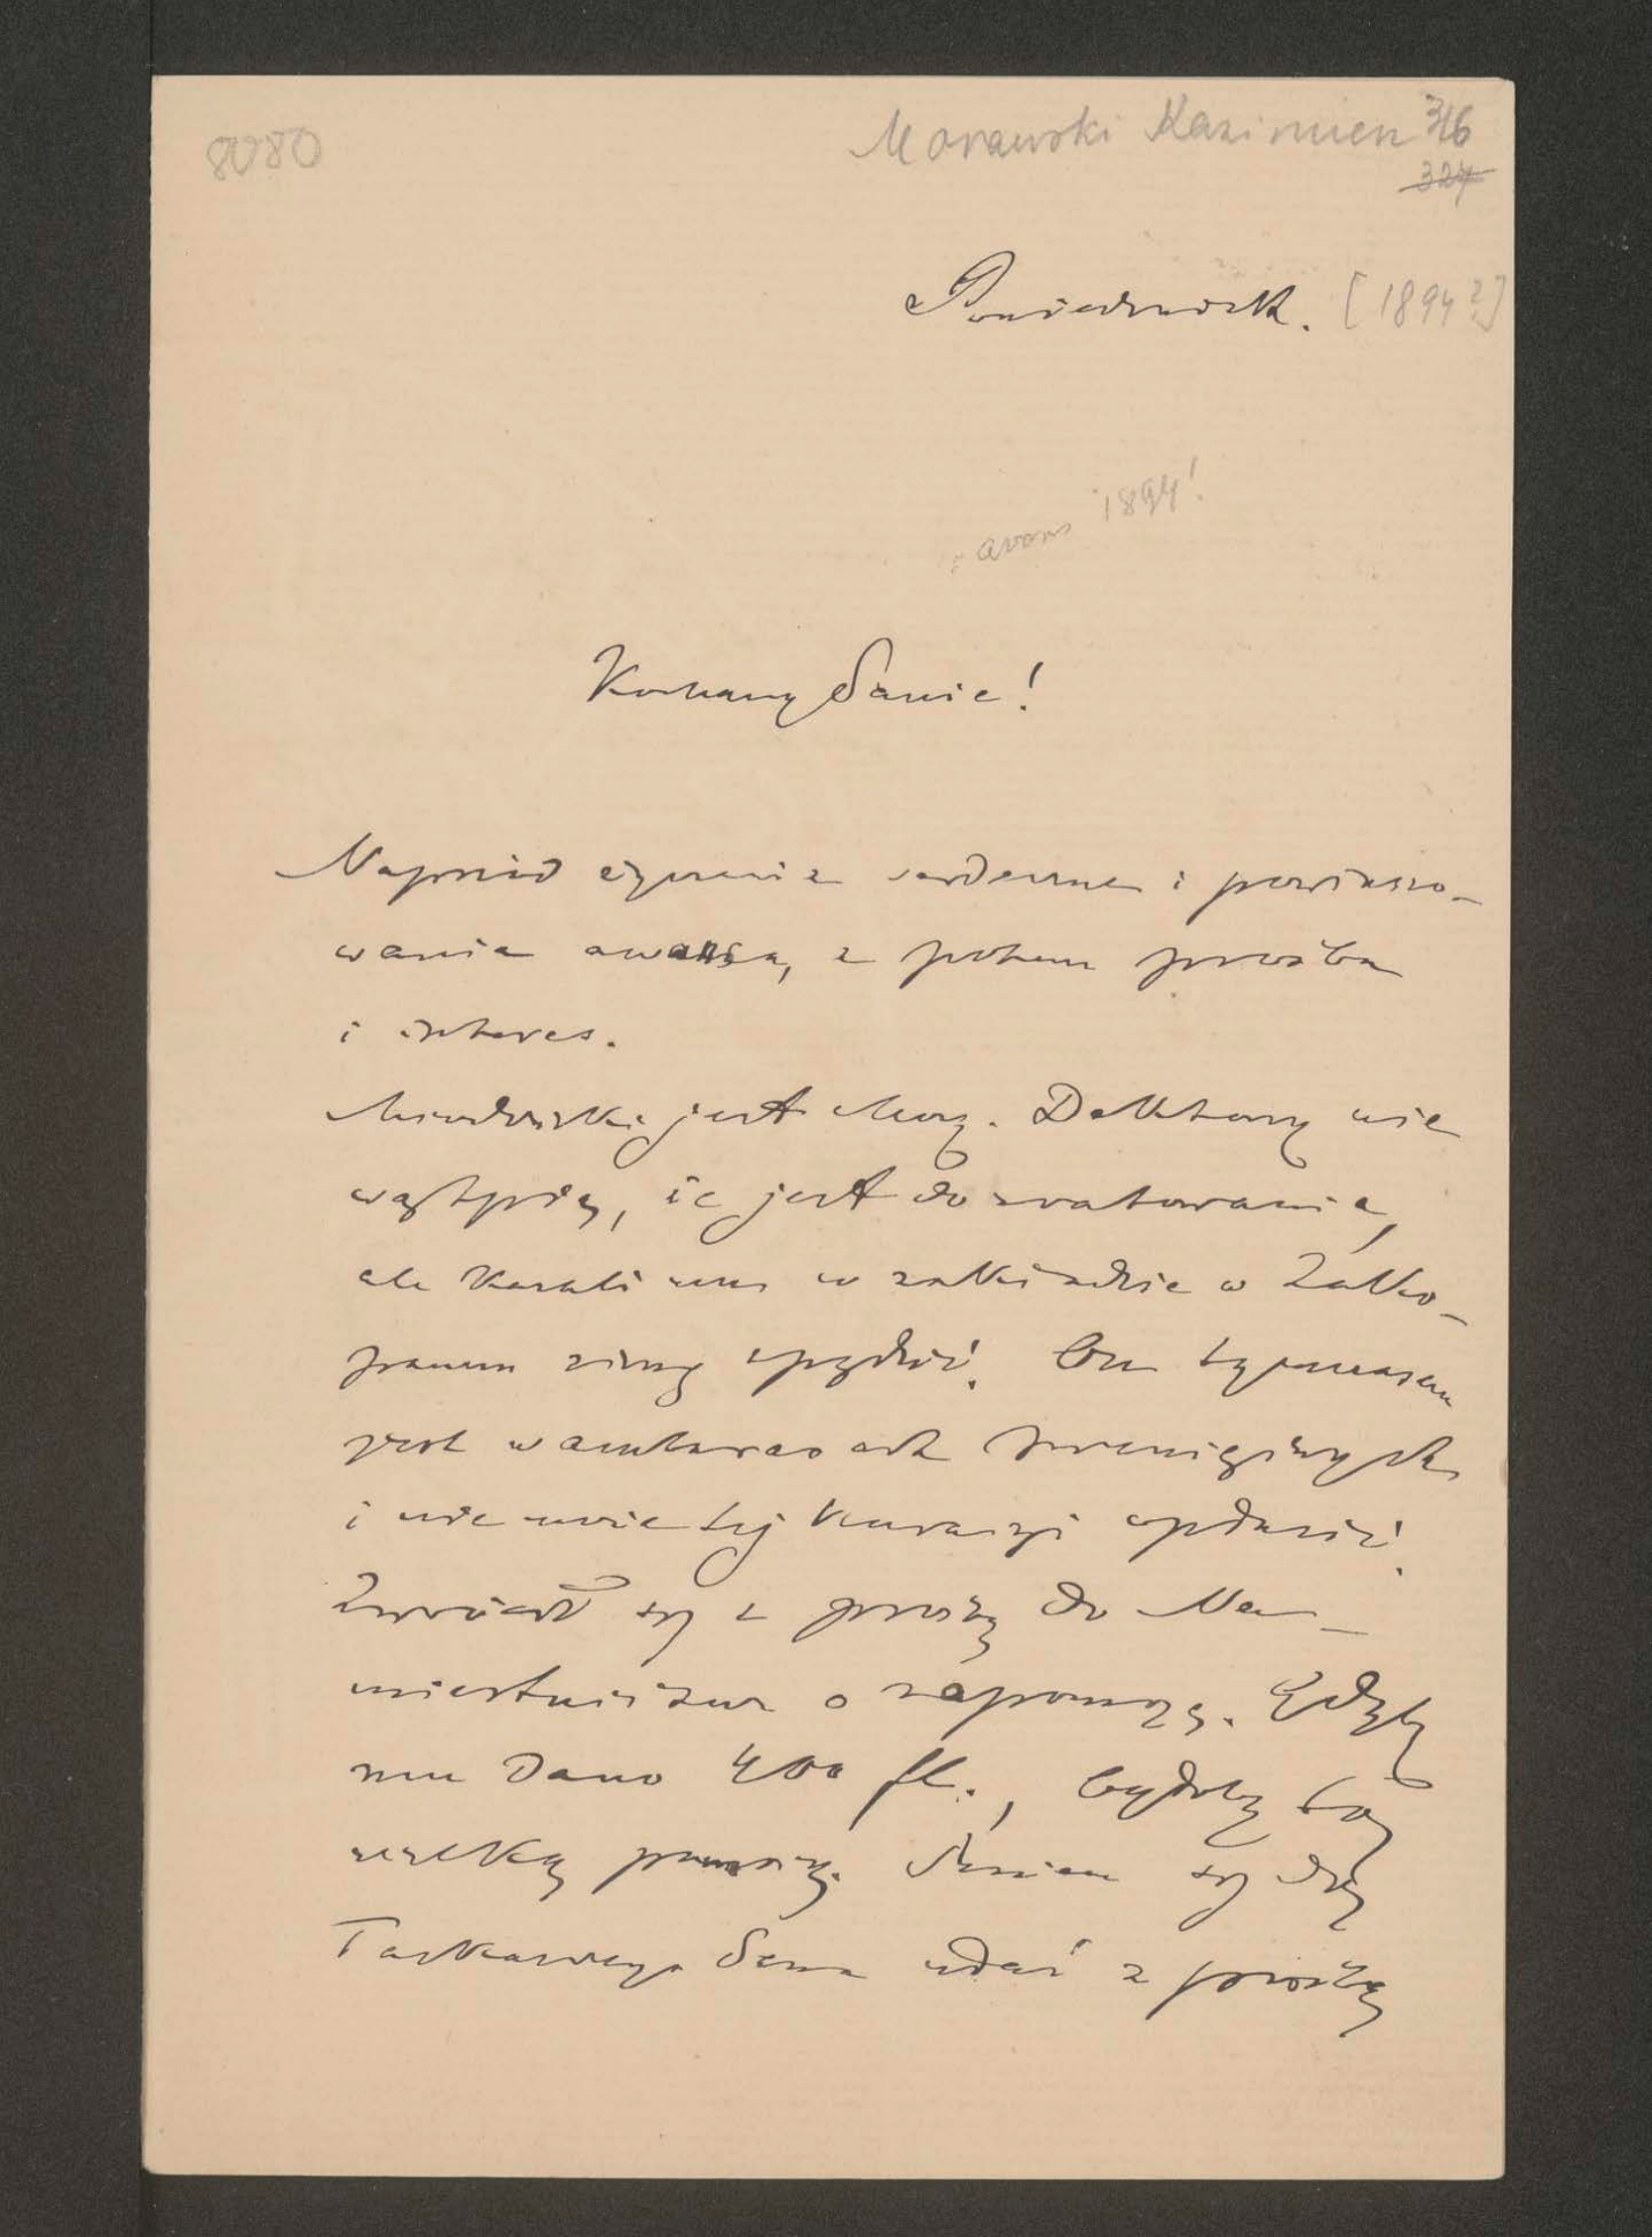 8080
Morawski Kazimierz 316
324
Poniedziałek. [1894?]
awans 1894!
Kochany Panie!
Naprzód życzenia serdeczne i powinszo-
wania awansu, a potem prośba
i interes.
jest chory. Doktorzy nie
wątpią, że jest do uratowania,
ale kazali mu w zakładzie w Zako-
panem zimę spędzić. On tymczasem
jest w ambarasach pieniężnych
i nie może tej kuracyi opłacić.
Zwrócił się z prośbą do Na-
miestnictwa o zapomogę. Gdyby
mu dano 400 fl., byłoby to
wielką pomocą. Śmiem się do
Łaskawego Pana udać z prośbą